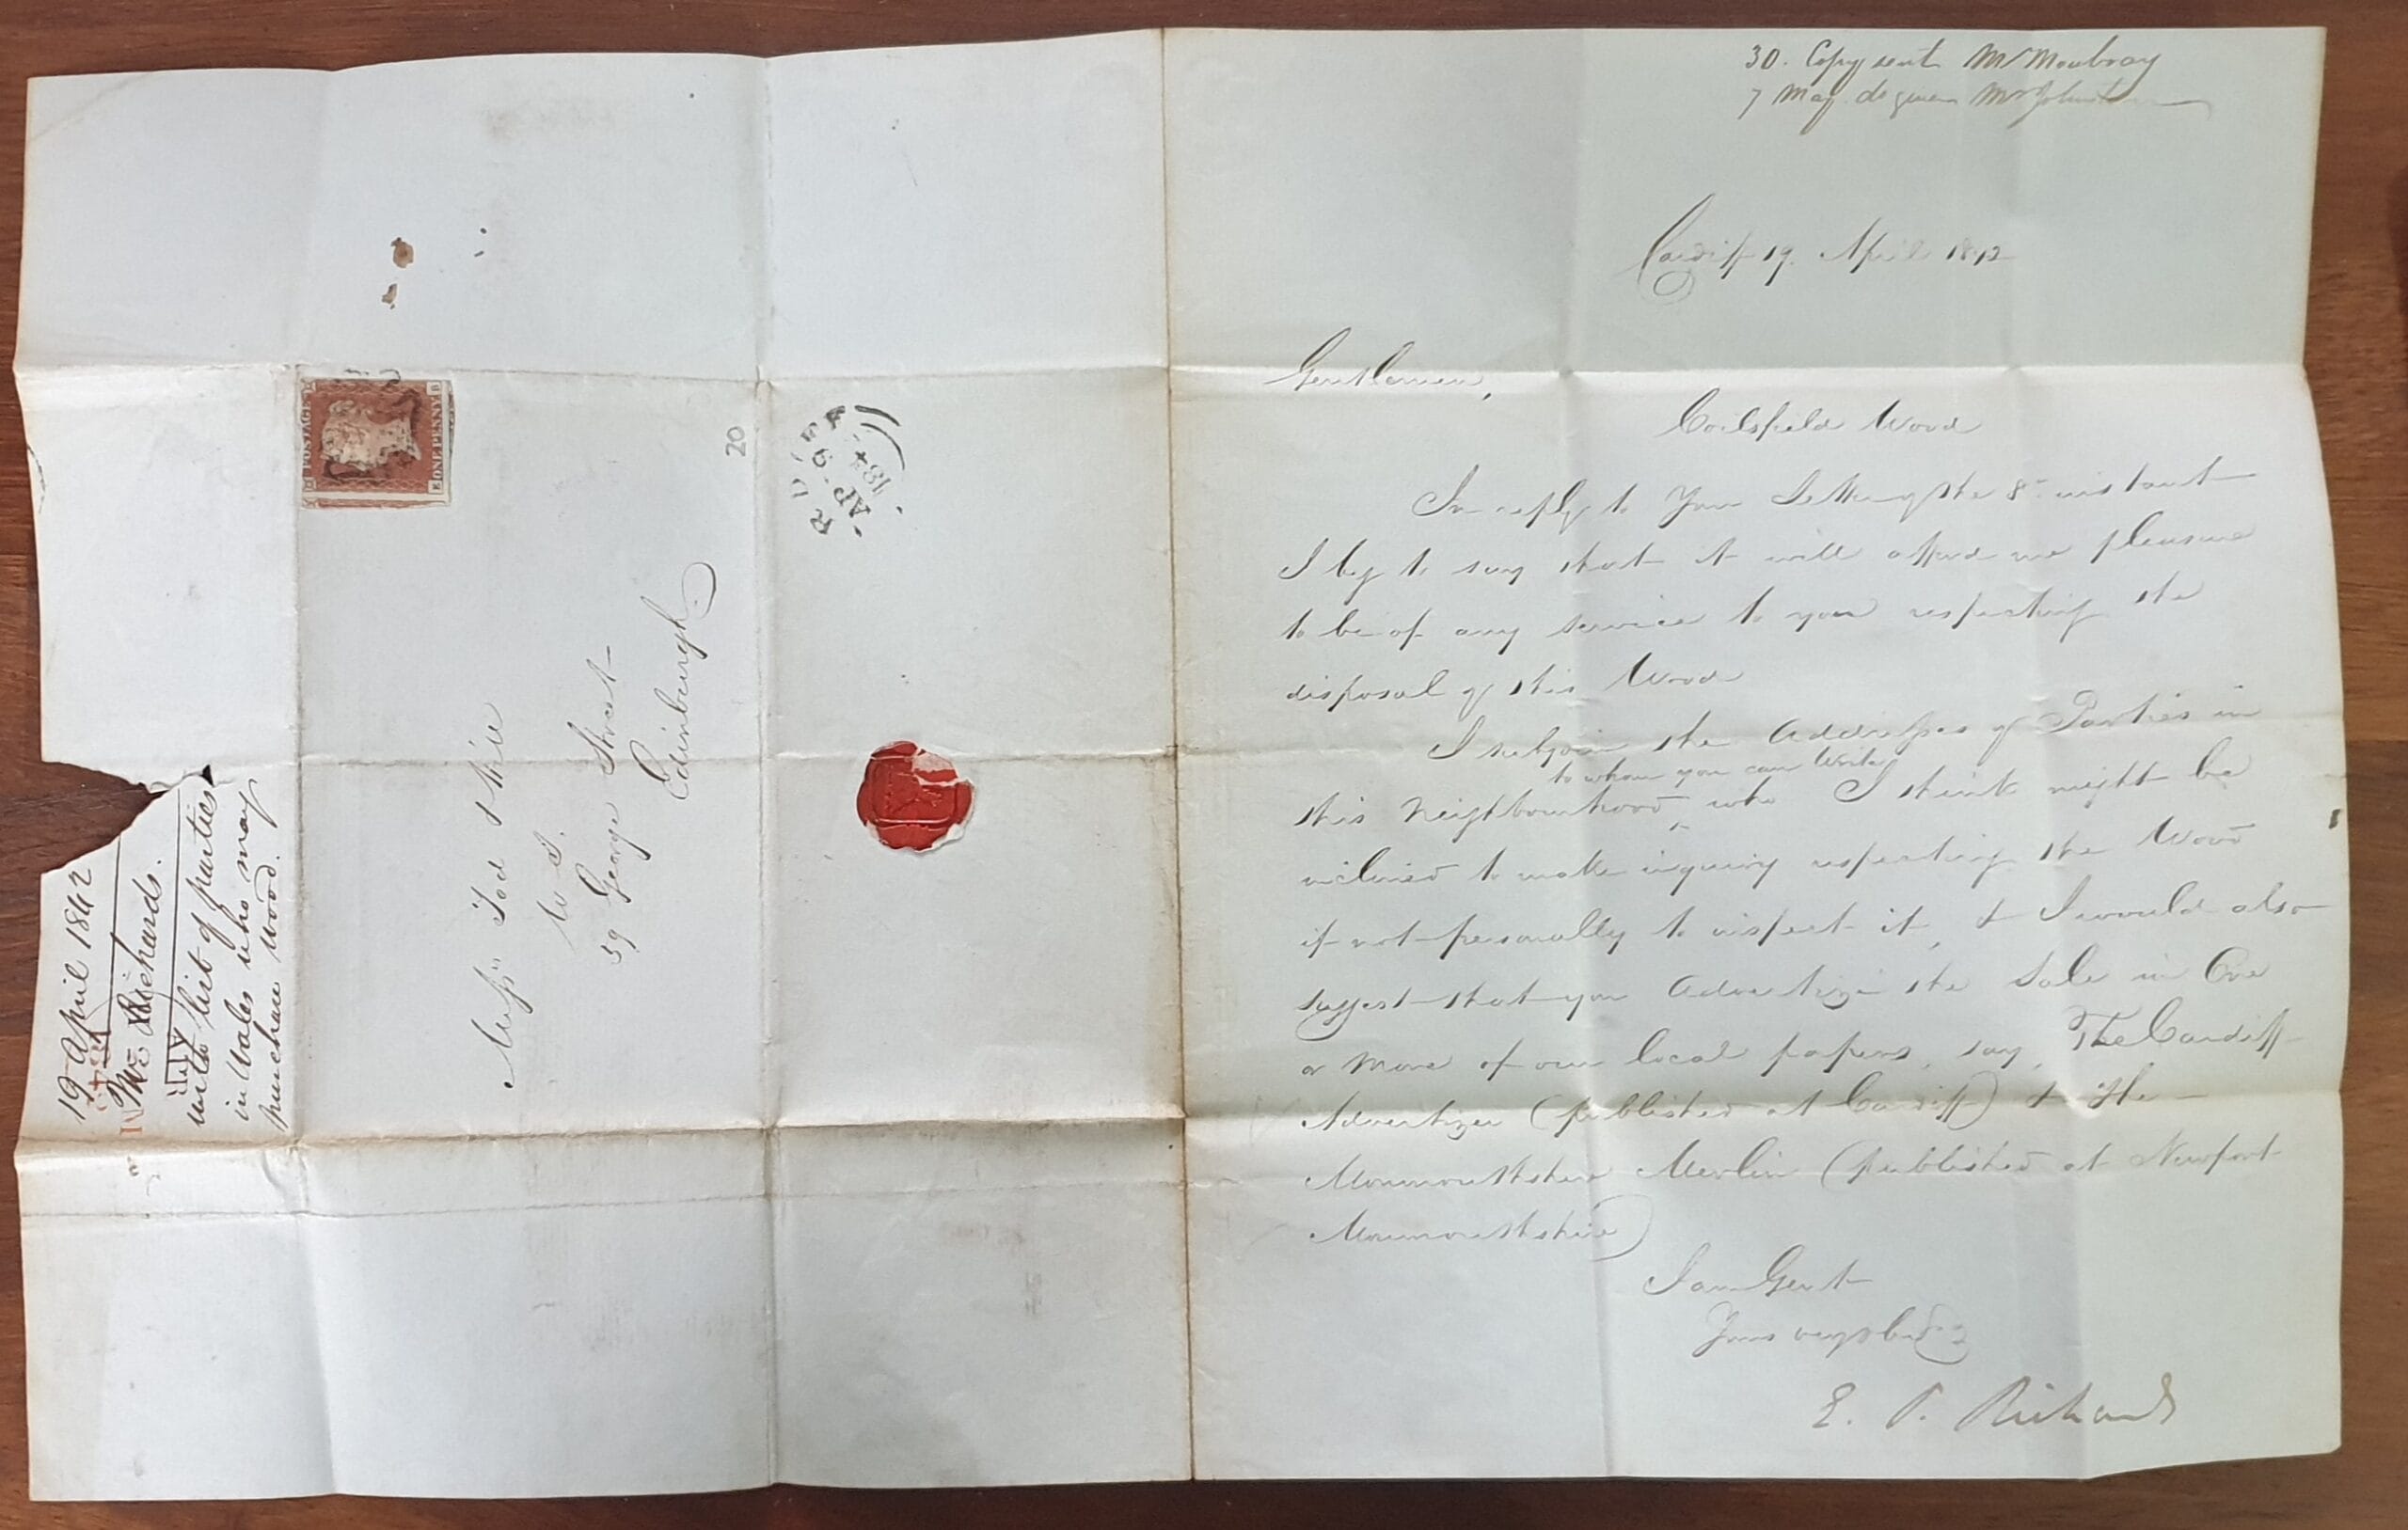 19 April 1842
Mr Richards.
with list of parties
in Wales who may
purchase wood.
POSTAGE
ONE PENNY
Messrs Tod &
W S.
59 George Street
Edinburgh
20
AP 19
184
30. Copy sent Mr Moubray
7 May. do given Mr Johnston
Cardiff 19. April 1842
Gentlemen,
Coilsfield Wood
In reply to Your Letter of the 8th instant
I beg to say that it will afford me pleasure
to be of any service to you respecting the
disposal of this Wood
I subjoin the Addresses of Parties in
to whom you can Write
this Neighbourhood, who I think might be
inclined to make inquiry respecting the Wood
if not personally to inspect it, & I would also
suggest that you Advertize the Sale in One
or more of our local papers, say, The Cardiff
Advertizer (published at Cardiff) & The
Monmouthshire Merlin (published at Newport
Monmouthshire)
I am Gent
Yours very
E. P. Richards